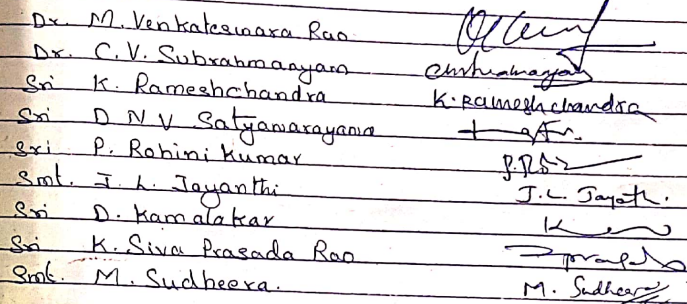 Dr. M. Venkateswara Rao
Dr. C. V. Subrahmanyam
Sri K. Rameshchandra K. Rameshchandra
Sri D N V Satyanarayana
Sri P. Rohini Kumar
Smt. J. L. Jayanthi J. L. Jayath.
Sri D. Kamalakar
Sri K. Siva Prasada Rao
Smt. M. Sudheera. M. Sudheera